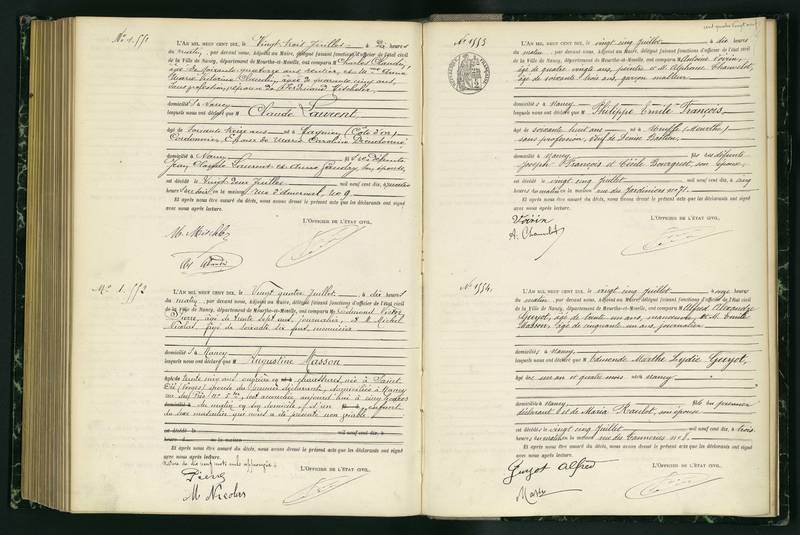 No 1.551
L'AN MIL NEUF CENT DIX, le Vingt trois Juillet à dix heures
du matin, par devant nous, Adjoint au Maire, délégué faisant fonctions d'officier de l'état civil
de la Ville de Nancy, département de Meurthe-et-Moselle, ont comparu M. Charles Claudin,
âgé de soixante quatorze ans rentier, et Mme Anne
Marie Victorine Claudin, âgée de quarante cinq ans,
sans profession, épouse de Ferdinand
domicilié s à Nancy
lesquels nous ont déclaré que M Claude Laurent
âgé de soixante treize ans né à Lagnier (Côte d'Or)
Cordonnier, Époux de Marie Caroline
domicilié à Nancy fils des défunts
Jean Claude Laurent et Anne son épouse
est décédé le Vingt deux Juillet mil neuf cent dix, à quatre
heures du soir en la maison rue d'Amerval, no 9.
Et après nous être assuré du décès, nous avons dressé le présent acte que les déclarants ont signé
avec nous après lecture.
L'OFFICIER DE L'ÉTAT CIVIL.
No 1.552
L'AN MIL NEUF CENT DIX, le Vingt quatre Juillet à dix heures
du matin, par devant nous, Adjoint au Maire, délégué faisant fonctions d'officier de l'état civil
de la Ville de Nancy, département de Meurthe-et-Moselle, ont comparu M. Edmond Victor
Pierre, âgé de trente sept ans, journalier, et M. Michel
Nicolas, âgé de soixante six ans, menuisier
domicilié s à Nancy
lesquels nous ont déclaré que M Augustine Masson
âgée de trente cinq ans née à Saint
Dié (Vosges) épouse du premier déclarant, domiciliée à Nancy
est accouchée, aujourd'hui à cinq heures
du matin en son domicile, d'un enfant
du sexe masculin qui nous a été présenté non viable
est décédé le mil neuf cent dix, à
heures en la maison
Et après nous être assuré du décès, nous avons dressé le présent acte que les déclarants ont signé
avec nous après lecture.
L'OFFICIER DE L'ÉTAT CIVIL.
Pierre
M Nicolas
No 1553
L'AN MIL NEUF CENT DIX, le vingt cinq Juillet à dix heures
du matin, par devant nous, Adjoint au Maire, délégué faisant fonctions d'officier de l'état civil
de la Ville de Nancy, département de Meurthe-et-Moselle, ont comparu M. Antoine Voirin,
âgé de quatre vingts ans, et M. Alphonse Chamelot,
âgé de soixante trois ans, garçon
domicilié s à Nancy
lesquels nous ont déclaré que M Philippe Emile François
âgé de soixante huit ans né à (Meurthe)
sans profession, veuf de
domicilié à Nancy fils des défunts
Joseph François et Cécile Bourguet, son épouse,
est décédé le vingt cinq Juillet mil neuf cent dix, à cinq
heures du matin en la maison rue des Jardiniers no 71.
Et après nous être assuré du décès, nous avons dressé le présent acte que les déclarants ont signé
avec nous après lecture.
L'OFFICIER DE L'ÉTAT CIVIL.
Voirin
A. Chamelot
No 1554.
L'AN MIL NEUF CENT DIX, le vingt cinq Juillet à onze heures
du matin, par devant nous, Adjoint au Maire, délégué faisant fonctions d'officier de l'état civil
de la Ville de Nancy, département de Meurthe-et-Moselle, ont comparu M. Alfred Alexandre
Guyot, âgé de trente ans, et M. Emile
âgé de cinquante ans, journalier
domicilié s à Nancy
lesquels nous ont déclaré que M Edmonde Marthe Lydie Guyot,
âgée de un an et quatre mois née à Nancy
domiciliée à Nancy fille du premier
déclarant et de Marie Raulot, son épouse
est décédée le vingt cinq Juillet mil neuf cent dix, à trois
heures du matin en la maison rue des Tanneries no 8.
Et après nous être assuré du décès, nous avons dressé le présent acte que les déclarants ont signé
avec nous après lecture.
L'OFFICIER DE L'ÉTAT CIVIL.
Guyot Alfred